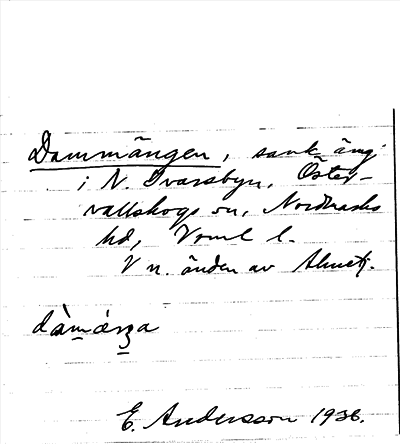 Dammängen, sank äng
i N. Ivarsbyn, Öster-
vallskogs sn, Nordmarks
hd, Vrml l.
V n. änden av
dàmǽŋa
E. Andersson 1936.